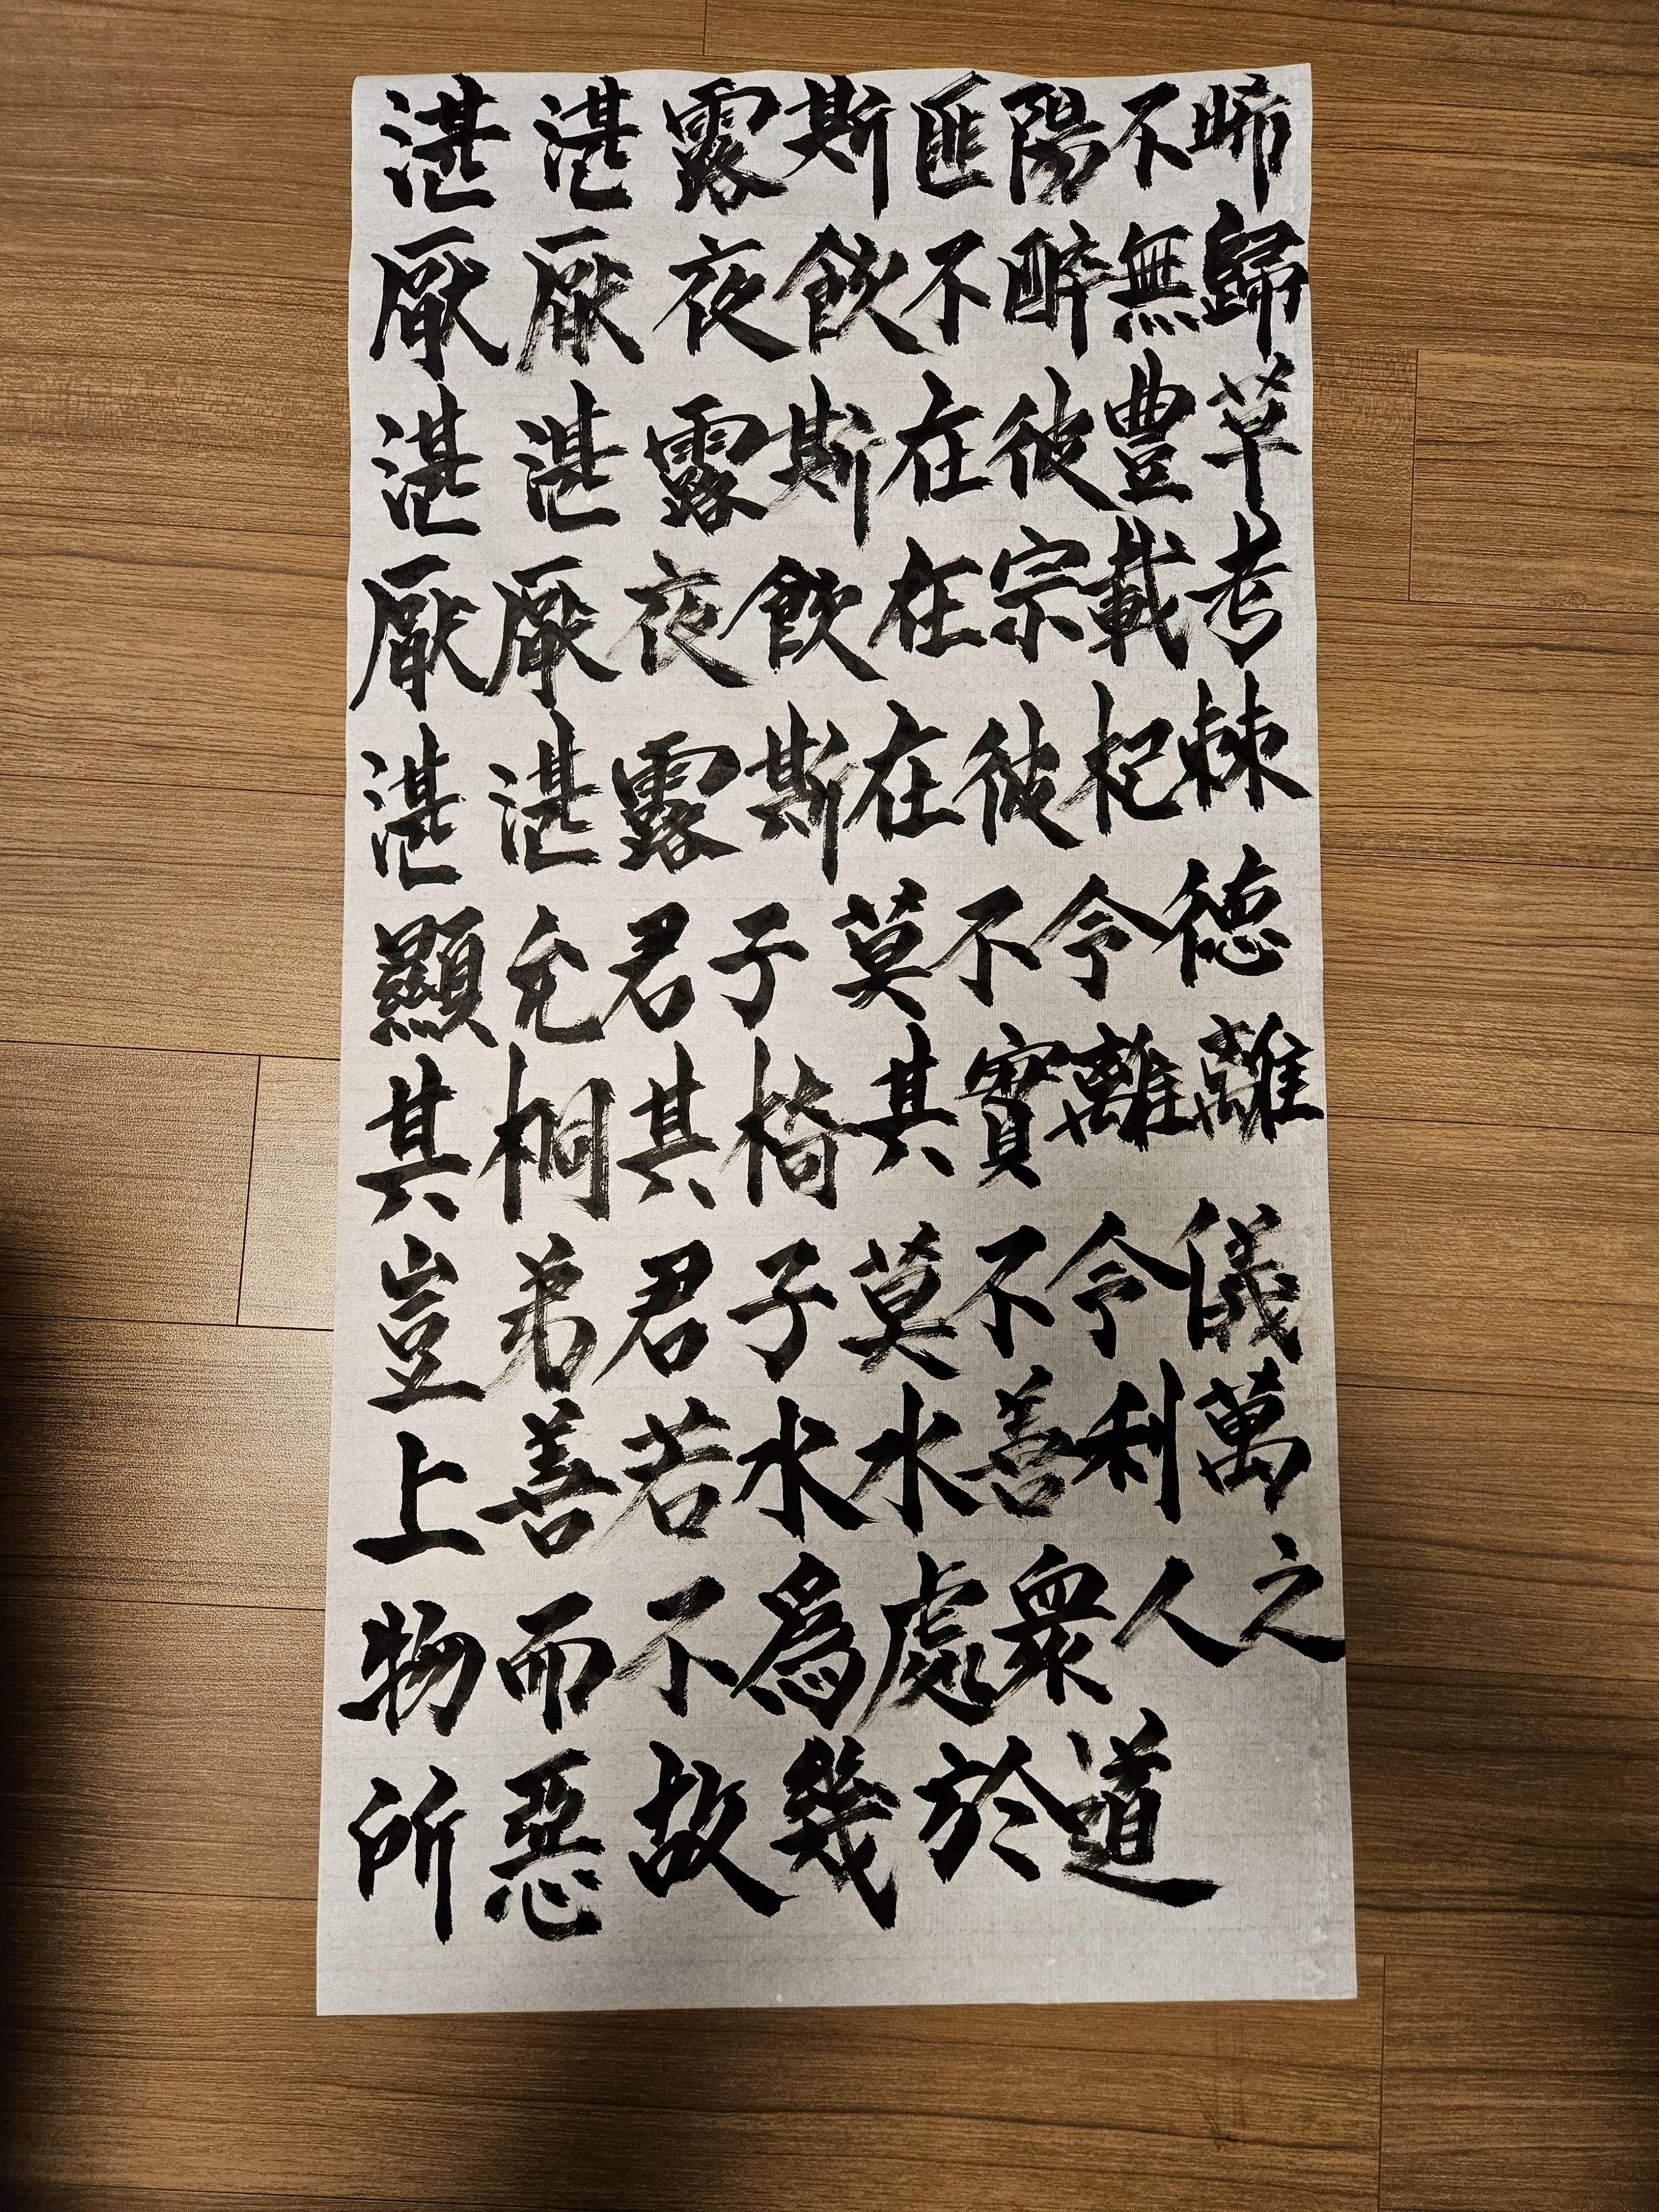 湛湛露斯匪陽不晞
厭厭夜飲不醉無歸
湛湛露斯在彼豊草
厭厭夜飲在宗載考
湛湛露斯在彼杞棘
顯允君子莫不令德
其桐其椅其實離離
豈弟君子莫不令儀
上善若水水善利萬
物而不爲處衆人之
所惡故幾於道